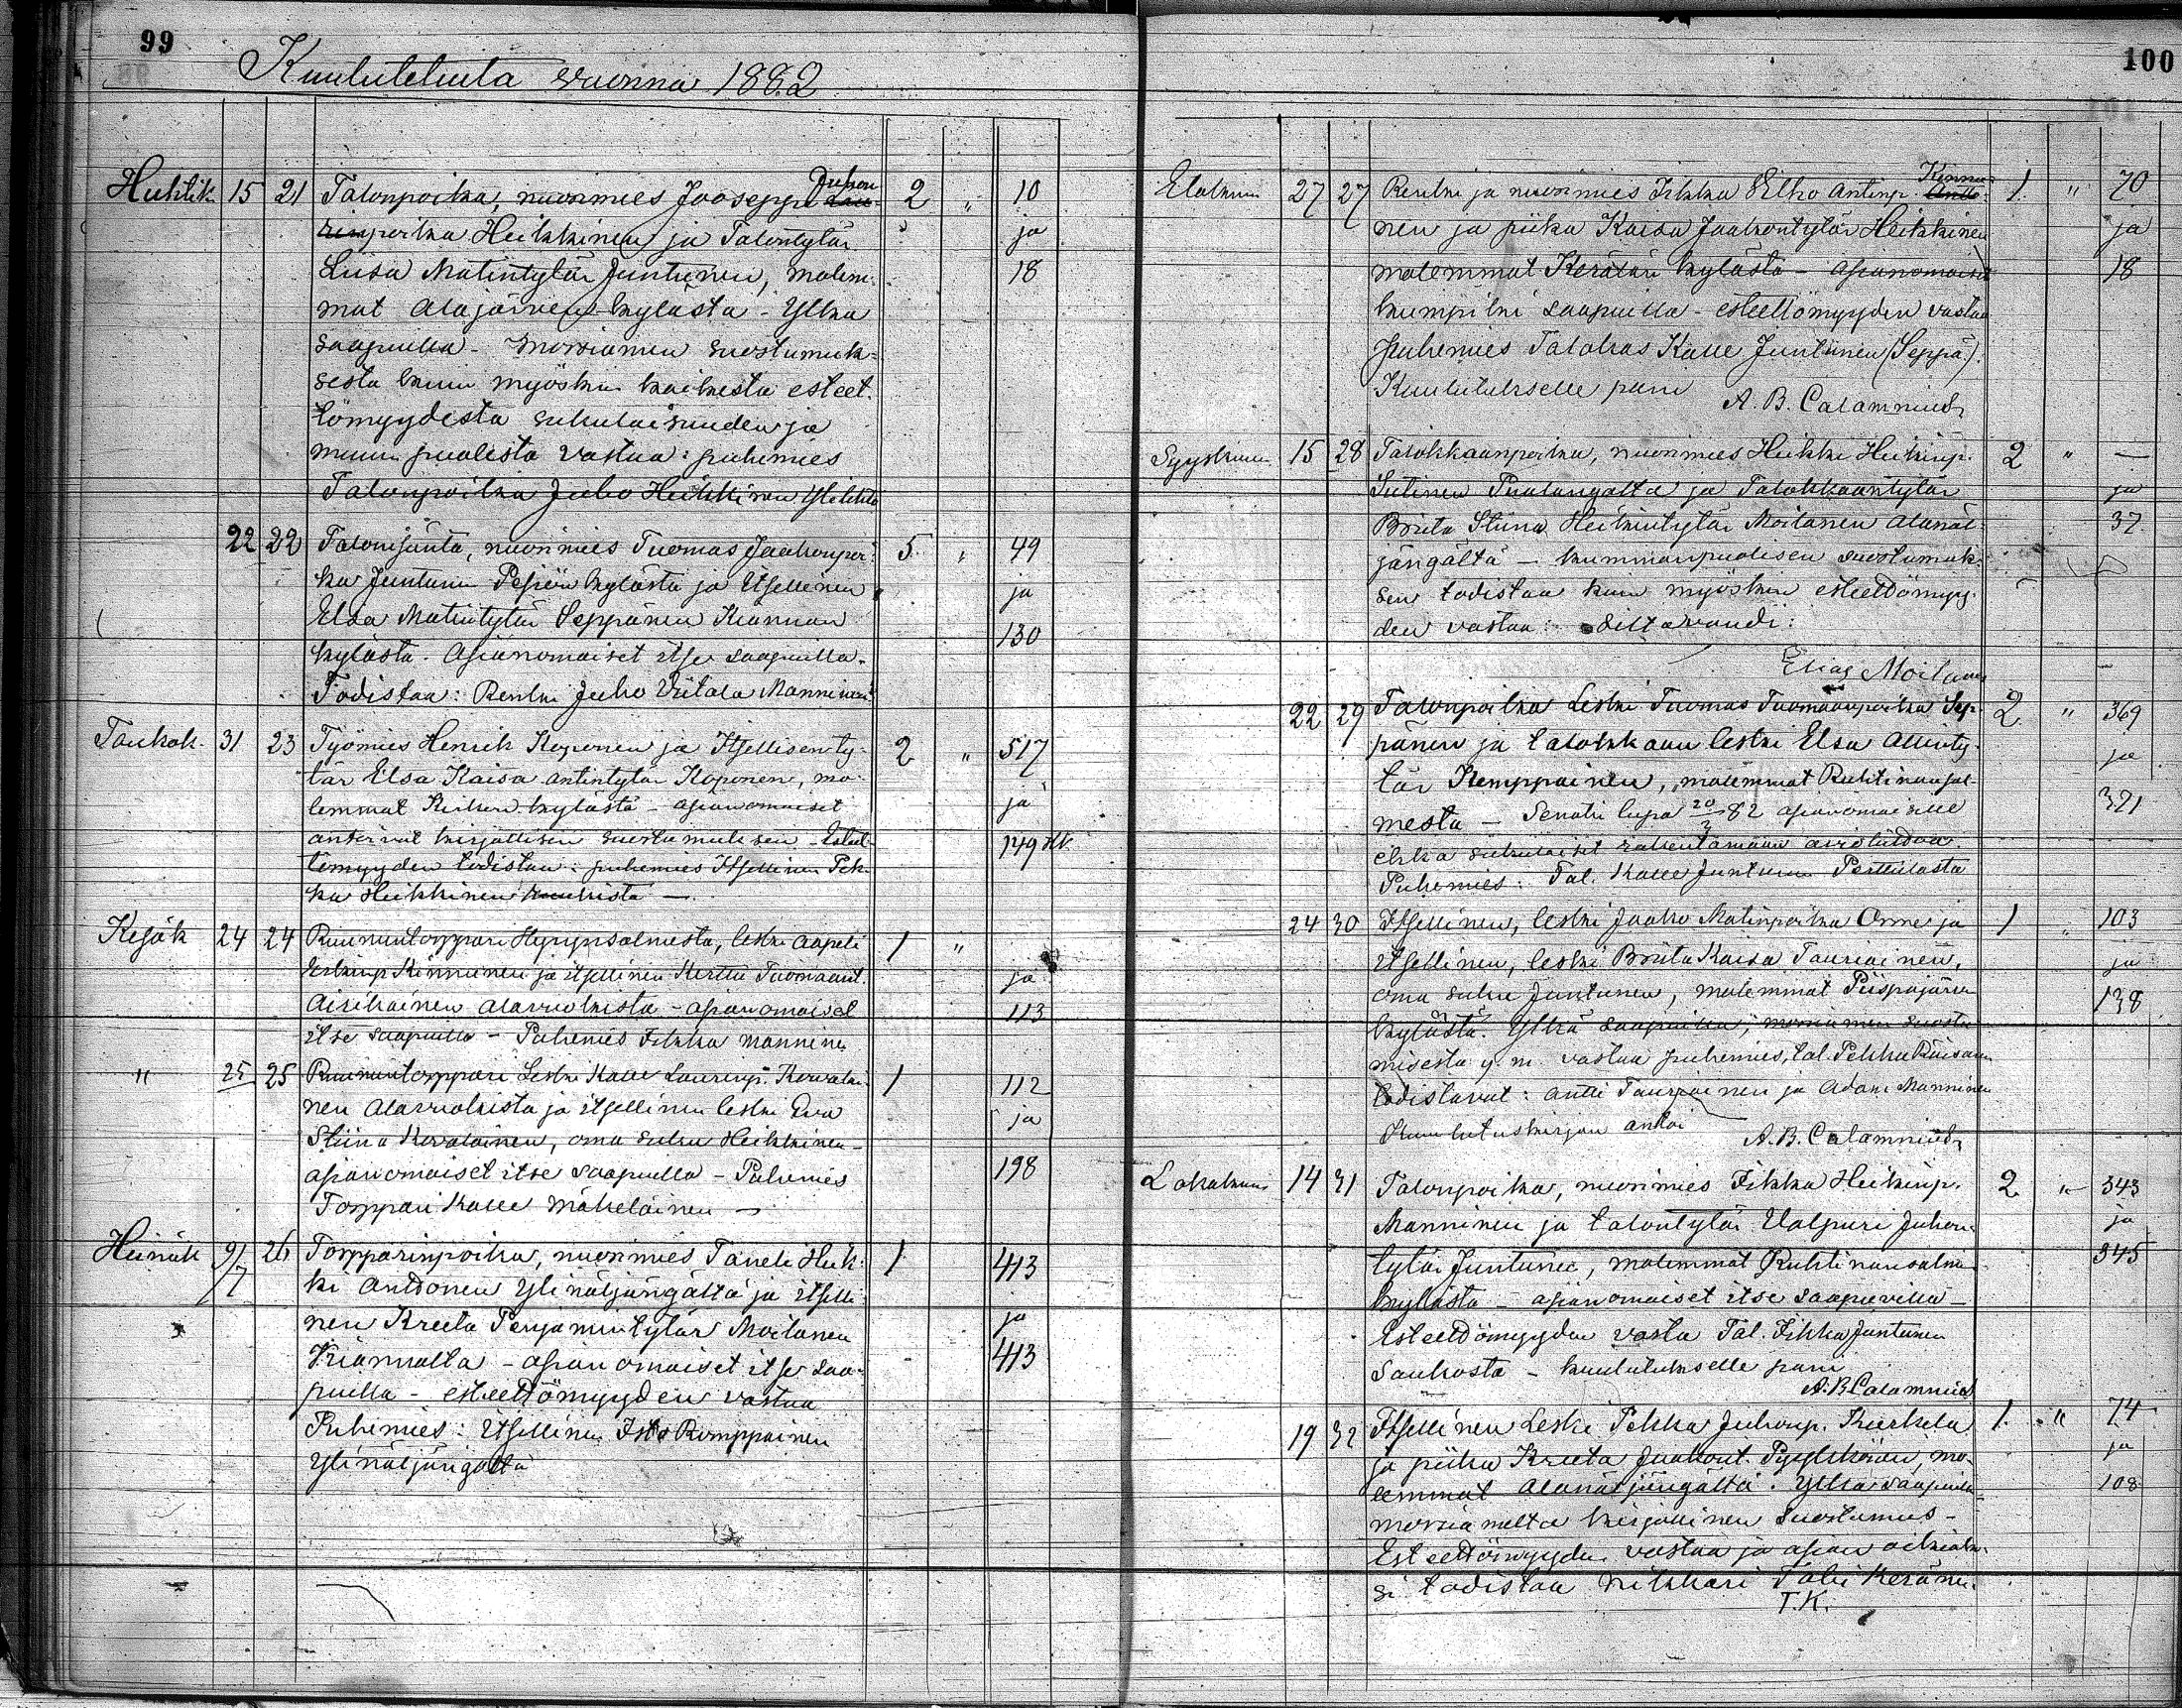 99
Kuulutetuita vuonna 1882
Huhtik. 15 21 Talonpoika, nuorimies Jooseppi Juhon 2 " 10
poika Heikkinen ja Talontytär ja
Liisa Matintytär Juntunen, molem- 18
mat Alajärven kylästä - Ylkä
saapuilla - morsiamen suostumuk-
sesta kuin myöskin kaikesta esteet-
tömyydestä sukulaisuuden ja
muun puolesta vastaa: puhemies
Talonpoika Juho Heikkinen
22 22 Talonisäntä, nuorimies Tuomas Jaakonpoi- 5 " 49
ka Juntunen Pesiön kylästä ja Itsellinen ja
Elsa Matintytär Seppänen Kiannan 130
kylästä. Asianomaiset itse saapuilla.
Todistaa: Renki Juho Viitala Manninen
Toukok. 31 23 Työmies Henrik Koponen ja Itsellisen ty- 2 " 517
tär Elsa Kaisa Antintytär Koponen, mo- ja
lemmat Kirkon kylästä - asianomaiset
antoivat kirjallisen suostumuksen - Esteet- 149
tömyyden todistaa: puhemies Itsellinen Pek-
ka Heikkinen
Kesäk 24 24 Ruununtorppari Hyrynsalmesta, leski Aapeli 1 "
Erkinp. Kinnunen ja itsellinen Kerttu Tuomaant. ja
Alavuokista - asianomaiset 113
itse saapuilla - Puhemies Iikka Manninen
" 25 25 Ruununtorppari Leski Kalle Laurinp. Kovalai- 1 112
nen Alavuokista ja itsellinen leski Eva ja
Stiina Kovalainen, oma suku Heikkinen -
asianomaiset itse saapuilla - Puhemies 198
Torppari Kalle Mäkeläinen -
Heinäk 9/7 26 Torpparinpoika, nuorimies Taneli Heik- 1 413
ki Anttonen Ylinäljängältä ja itselli-
nen Kreeta Penjamintytär Moilanen ja
Kiannalta - asianomaiset itse saa- 413
puilla - esteettömyyden vastaa
Puhemies: Itsellinen Romppainen
Ylinäljängältä
100
Elokuu 27 27 Renki ja nuorimies Iikka Elho Antinp. Kinnu- 1. " 70
nen ja piika Kaisa Jaakontytär Heikkinen ja
molemmat Kerälän kylästä - Asianomaiset 18
kumpikin saapuilla - esteettömyyden vastaa
Puhemies Talokas Kalle Juntunen (Seppä).
Kuulutukselle pani A. B. Calamnius
Syyskuu 15 28 Talokkaanpoika, nuorimies Heikki Heikinp. 2 " —
Sutinen Puolangalta ja Talokkaantytär ja
Briita Stiina Heikintytär Moilanen Alanäl- 37
jängältä - kummanpuolisen suostumuk-
sen todistaa kuin myöskin esteettömyy-
den vastaa: siltavouti:
Elias Moilanen
22 29 Talonpoika Leski Tuomas Tuomaanpoika Sep- 2 " 369
pänen ja talokkaan leski Elsa Allinty- ja
tär Kemppainen, molemmat Ruhtinansal- 321
mesta - Senatin lupa 20/3 82 asianomaisille
ehkä sukulaiset rakentamaan avioliittoa.
Puhemies: Tal. Kalle Juntunen Perttulasta
24 30 Itsellinen, leski Jaako Matinpoika Onne ja 1 " 103
itsellinen, leski Briita Kaisa Tauriainen, ja
oma suku Juntunen, molemmat Piispajärven 138
kylästä. Ylkä saapuilla, morsiamen suostu-
misesta y. m. vastaa puhemies, tal. Pekka Räisänen
todistavat: Antti Tauriainen ja Adam Manninen
Kuulutuskirjan antoi A. B. Calamnius
Lokakuu 14 31 Talonpoika, nuorimies Iikka Heikinp. 2 " 343
Manninen ja talontytär Valpuri Juhon- ja
tytär Juntunen, molemmat Ruhtinansalmen 345
kylästä - asianomaiset itse saapuvilla -
Esteettömyyden vastaa Tal. Iikka Juntunen
Saukosta - kuulutukselle pani
A. B. Calamnius
19 32 Itsellinen Leski Pekka Juhonp. Kurkela 1. " 74
ja piika Kreeta Jaakont. Pyykkönen, mo- ja
lemmat Alanäljängältä. Ylkä saapuilla 108
morsiamelta kirjallinen suostumus -
Esteettömyyden vastaa ja asian oikeak-
si todistaa nikkari Tahi Keränen
T. K.